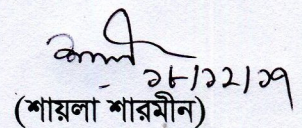 ১৮/১২/১৭
(শায়লা শারমীন)